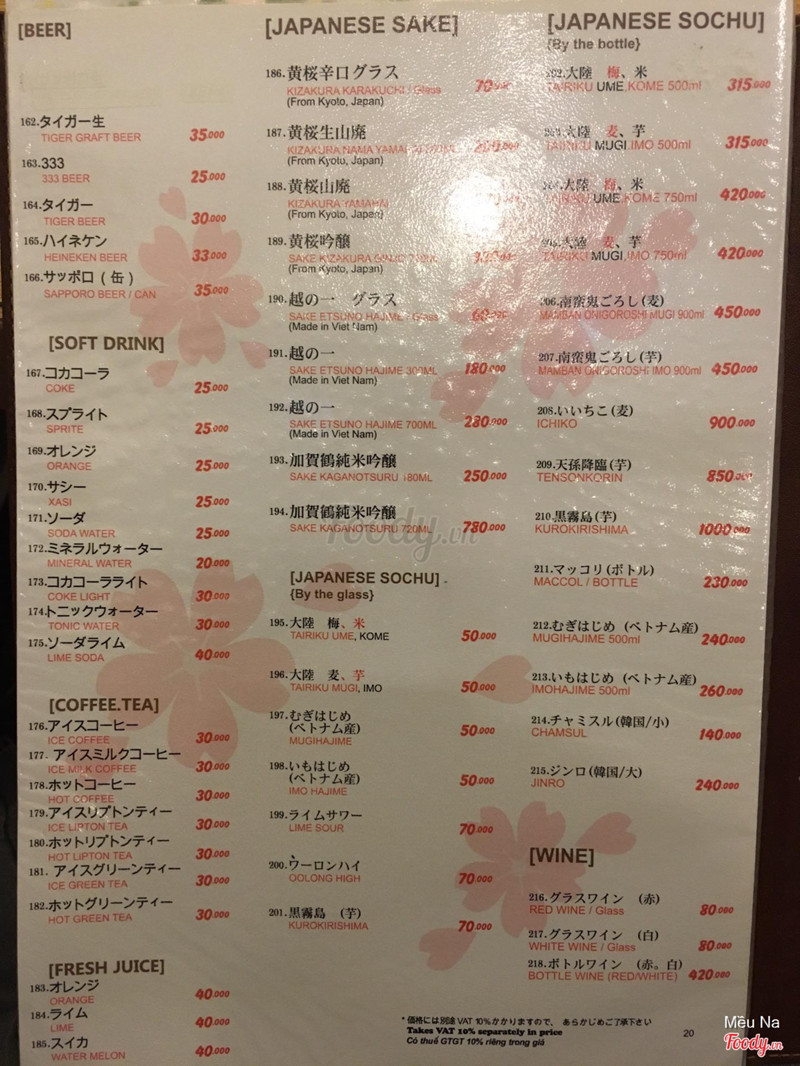 [BEER]
162.タイガー生
TIGER GRAFT BEER 35.000
163.333
333 BEER 25.000
164.タイガー
TIGER BEER 30.000
165.ハイネケン
HEINEKEN BEER 33.000
166.サッポロ(缶)
SAPPORO BEER / CAN 35.000
[SOFT DRINK]
167.コカコーラ
COKE 25.000
168.スプライト
SPRITE 25.000
169.オレンジ
ORANGE 25.000
170.サシー
XASI 25.000
171.ソーダ
SODA WATER 25.000
172.ミネラルウォーター
MINERAL WATER 20.000
173.コカコーラライト
COKE LIGHT 30.000
174.トニックウォーター
TONIC WATER 30.000
175.ソーダライム
LIME SODA 40.000
[COFFEE.TEA]
176.アイスコーヒー
ICE COFFEE 30.000
177.アイスミルクコーヒー
ICE MILK COFFEE 30.000
178.ホットコーヒー
HOT COFFEE 30.000
179.アイスリプトンティー
ICE LIPTON TEA 30.000
180.ホットリプトンティー
HOT LIPTON TEA 30.000
181.アイスグリーンティー
ICE GREEN TEA 30.000
182.ホットグリーンティー
HOT GREEN TEA 30.000
[FRESH JUICE]
183.オレンジ
ORANGE 40.000
184.ライム
LIME 40.000
185.スイカ
WATER MELON 40.000
[JAPANESE SAKE]
186.黄桜辛口グラス
KIZAKURA KARAKUCHI / Glass 70.000
(From Kyoto, Japan)
187.黄桜生山廃
KIZAKURA NAMA
(From Kyoto, Japan)
188.黄桜山廃
KIZAKURA YAMAHAI
(From Kyoto, Japan)
189.黄桜吟醸
SAKE KIZAKURA
(From Kyoto, Japan)
190.越の一 グラス
SAKE ETSUNO HAJIME / Glass 60.000
(Made in Viet Nam)
191.越の一
SAKE ETSUNO HAJIME 300ML 180.000
(Made in Viet Nam)
192.越の一
SAKE ETSUNO HAJIME 700ML
(Made in Viet Nam)
193.加賀鶴純米吟醸
SAKE KAGANOTSURU 180ML 250.000
194.加賀鶴純米吟醸
SAKE KAGANOTSURU 720ML 780.000
[JAPANESE SOCHU]
{By the glass}
195.大陸 梅、米
TAIRIKU UME, KOME 50.000
196.大陸 麦、芋
TAIRIKU MUGI, IMO 50.000
197.むぎはじめ
(ベトナム産)
MUGIHAJIME 50.000
198.いもはじめ
(ベトナム産)
IMO HAJIME 50.000
199.ライムサワー
LIME SOUR 70.000
200.ウーロンハイ
OOLONG HIGH 70.000
201.黒霧島 (芋)
KUROKIRISHIMA 70.000
[JAPANESE SOCHU]
{By the bottle}
202.大陸 梅、米
TAIRIKU UME,KOME 500ml 315.000
大陸 麦、芋
TAIRIKU MUGI,IMO 500ml 315.000
大陸 梅、米
TAIRIKU UME,KOME 750ml 420.000
大陸 麦、芋
TAIRIKU MUGI,IMO 750ml 420.000
206.南蛮鬼ごろし(麦)
MAMBAN ONIGOROSHI MUGI 900ml 450.000
207.南蛮鬼ごろし(芋)
MAMBAN ONIGOROSHI IMO 900ml 450.000
208.いいちこ(麦)
ICHIKO 900.000
209.天孫降臨(芋)
TENSONKORIN 850.000
210.黒霧島(芋)
KUROKIRISHIMA 1000.000
211.マッコリ(ボトル)
MACCOL / BOTTLE 230.000
212.むぎはじめ (ベトナム産)
MUGIHAJIME 500ml 240.000
213.いもはじめ (ベトナム産)
IMOHAJIME 500ml 260.000
214.チャミスル(韓国/小)
CHAMSUL 140.000
215.ジンロ(韓国/大)
JINRO 240.000
[WINE]
216.グラスワイン (赤)
RED WINE / Glass 80.000
217.グラスワイン (白)
WHITE WINE / Glass 80.000
218.ボトルワイン (赤。白)
BOTTLE WINE (RED/WHITE) 420.000
*価格には別途VAT 10%かかりますので、あらかじめご了承下さい
Takes VAT 10% separately in price
Có thuế GTGT 10% riêng trong giá
20
Foody.vn
Mều Na
Foody.vn